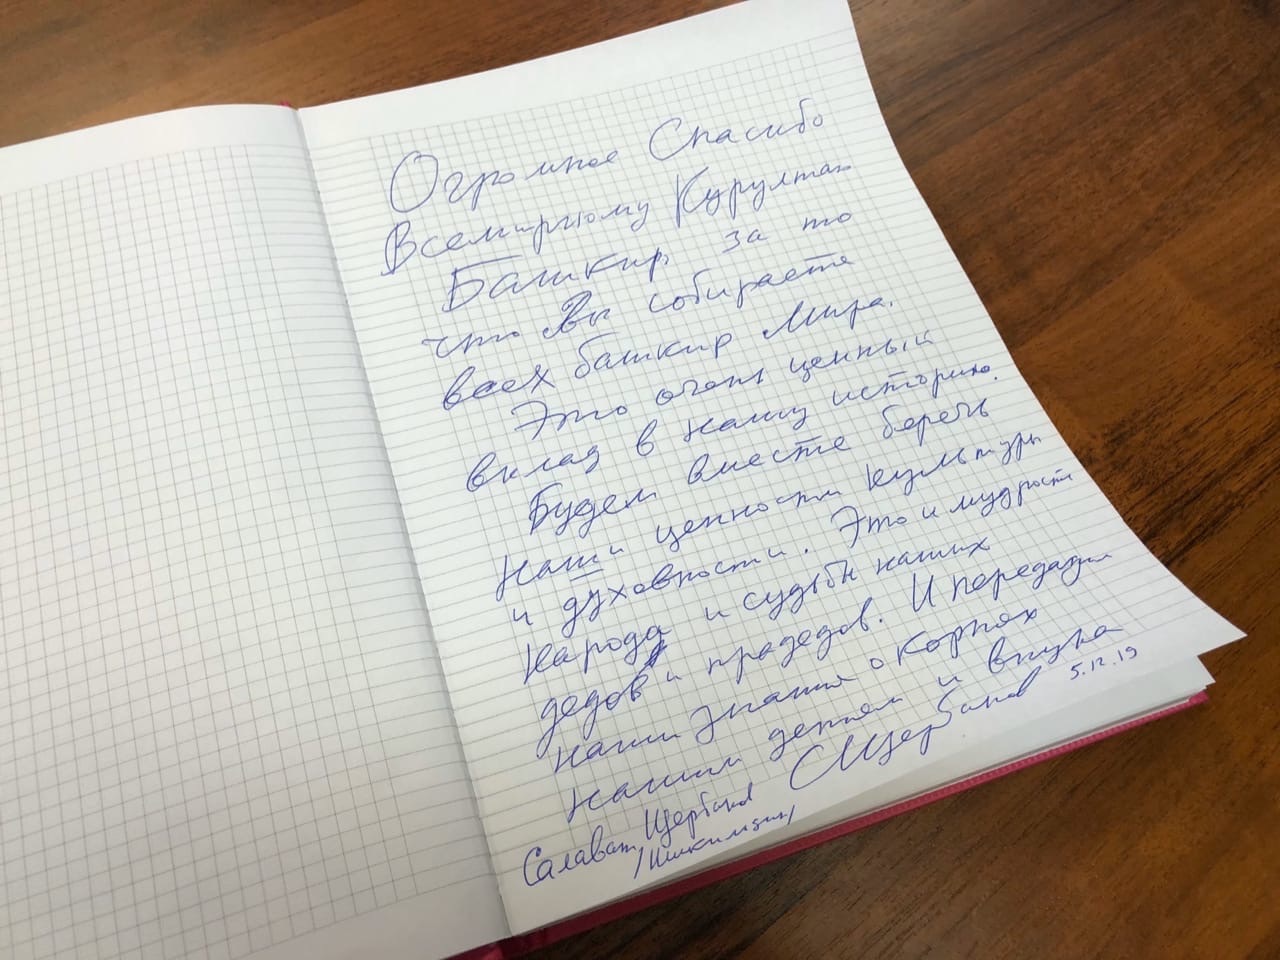 Огромное Спасибо
Всемирному Курултаю
Башкир за то
что Вы собираете
всех башкир Мира.
Это очень ценный
вклад в нашу историю.
Будем вместе беречь
наши ценности культуры
и духовности. Это и мудрость
народа и судьбы наших
дедов и прадедов. И передадим
наши знания о корнях
нашим детям и внукам
Салават Щербаков СЩербаков 5.12.19